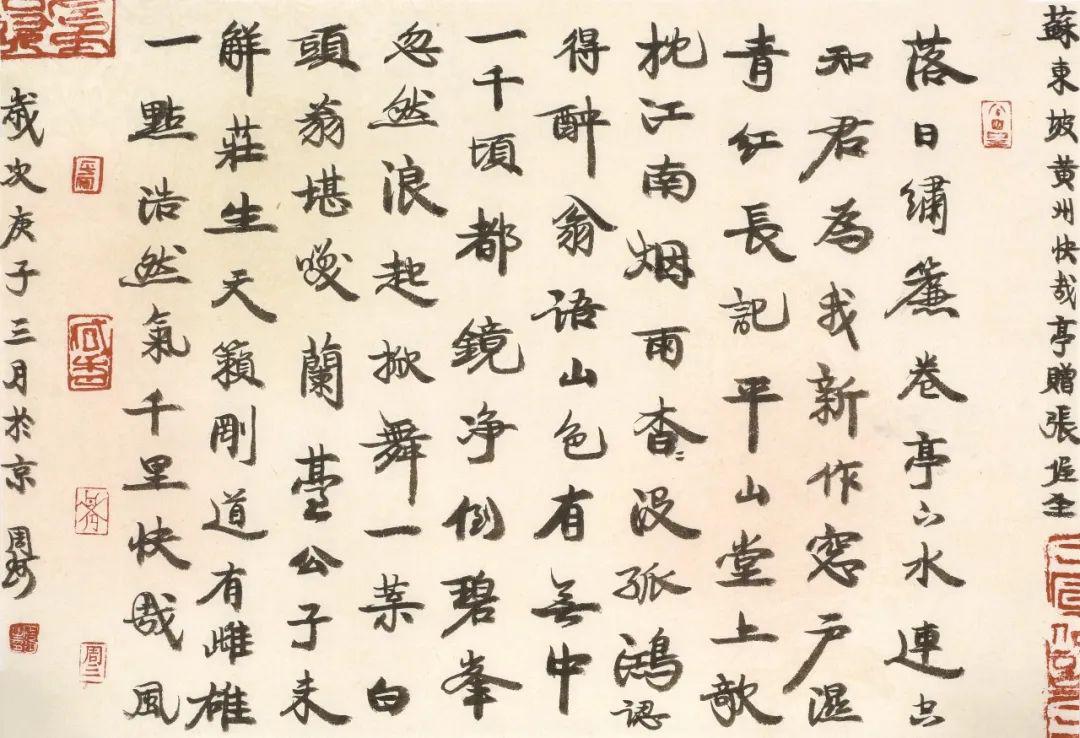 蘇東坡黄州快哉亭贈張偓佺
落日繡簾卷亭下水連空
知君為我新作窓户濕
青紅長記平山堂上欹
枕江南烟雨杳々没孤鴻認
得醉翁語山色有無中
一千頃都鏡净倒碧峯
忽然浪起掀舞一葉白
頭翁堪咲蘭臺公子未
解莊生天籟剛道有雌雄
一點浩然氣千里快哉風
歲次庚子三月於京 周